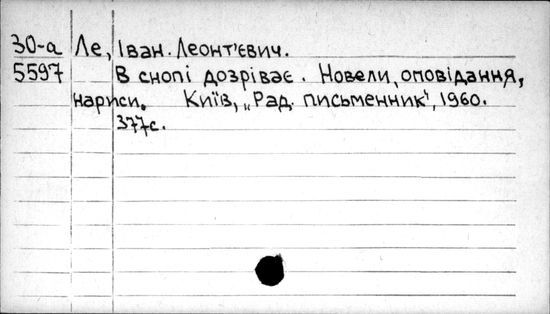 30-а Ле, Іван Леонт'євич.
5597 В снопі дозріває. Новели, оповідання,
нариси. Київ, „Рад. письменник", 1960.
377с.